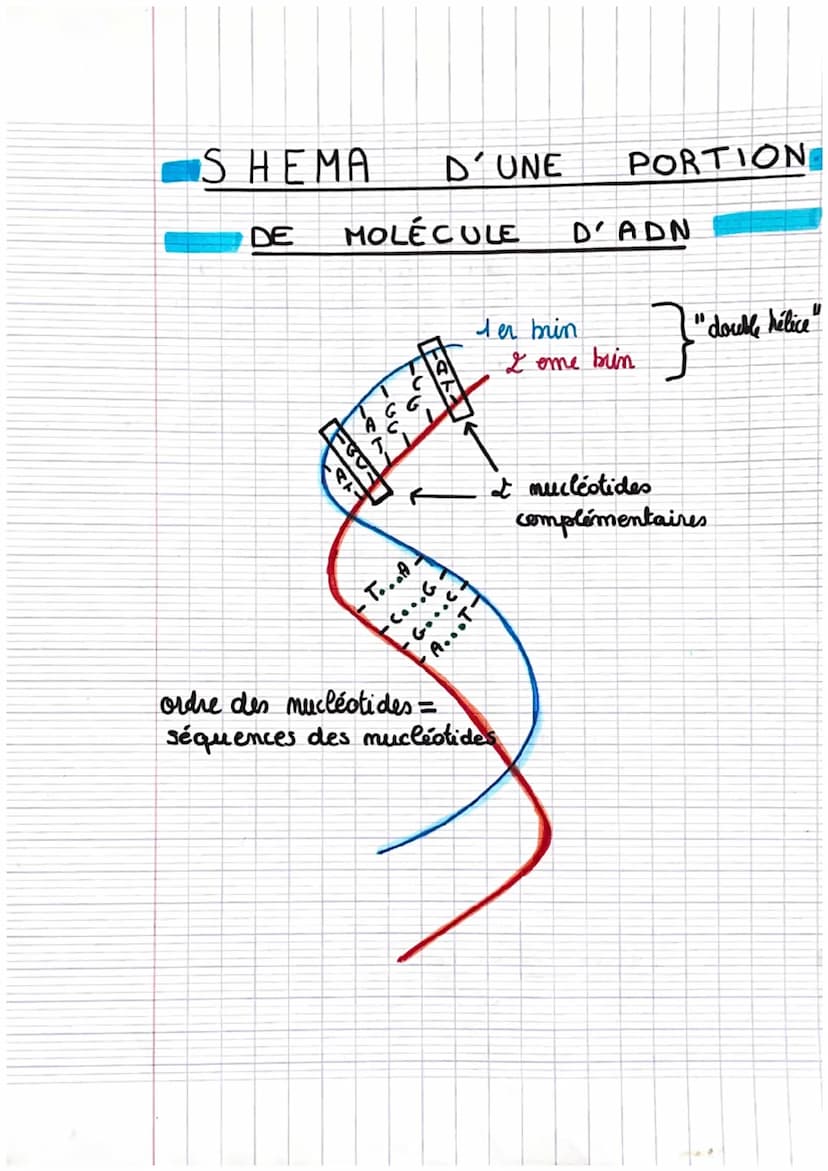 SHEMA D'UNE PORTION
DE MOLÉCULE D'ADN
1er brin
2 eme brin
"double hélice"
A T
C G
G C
A T
G C
A T
2 nucléotides
complémentaires
T....A
C....G
G....C
A....T
ordre des nucléotides =
séquences des nucléotides